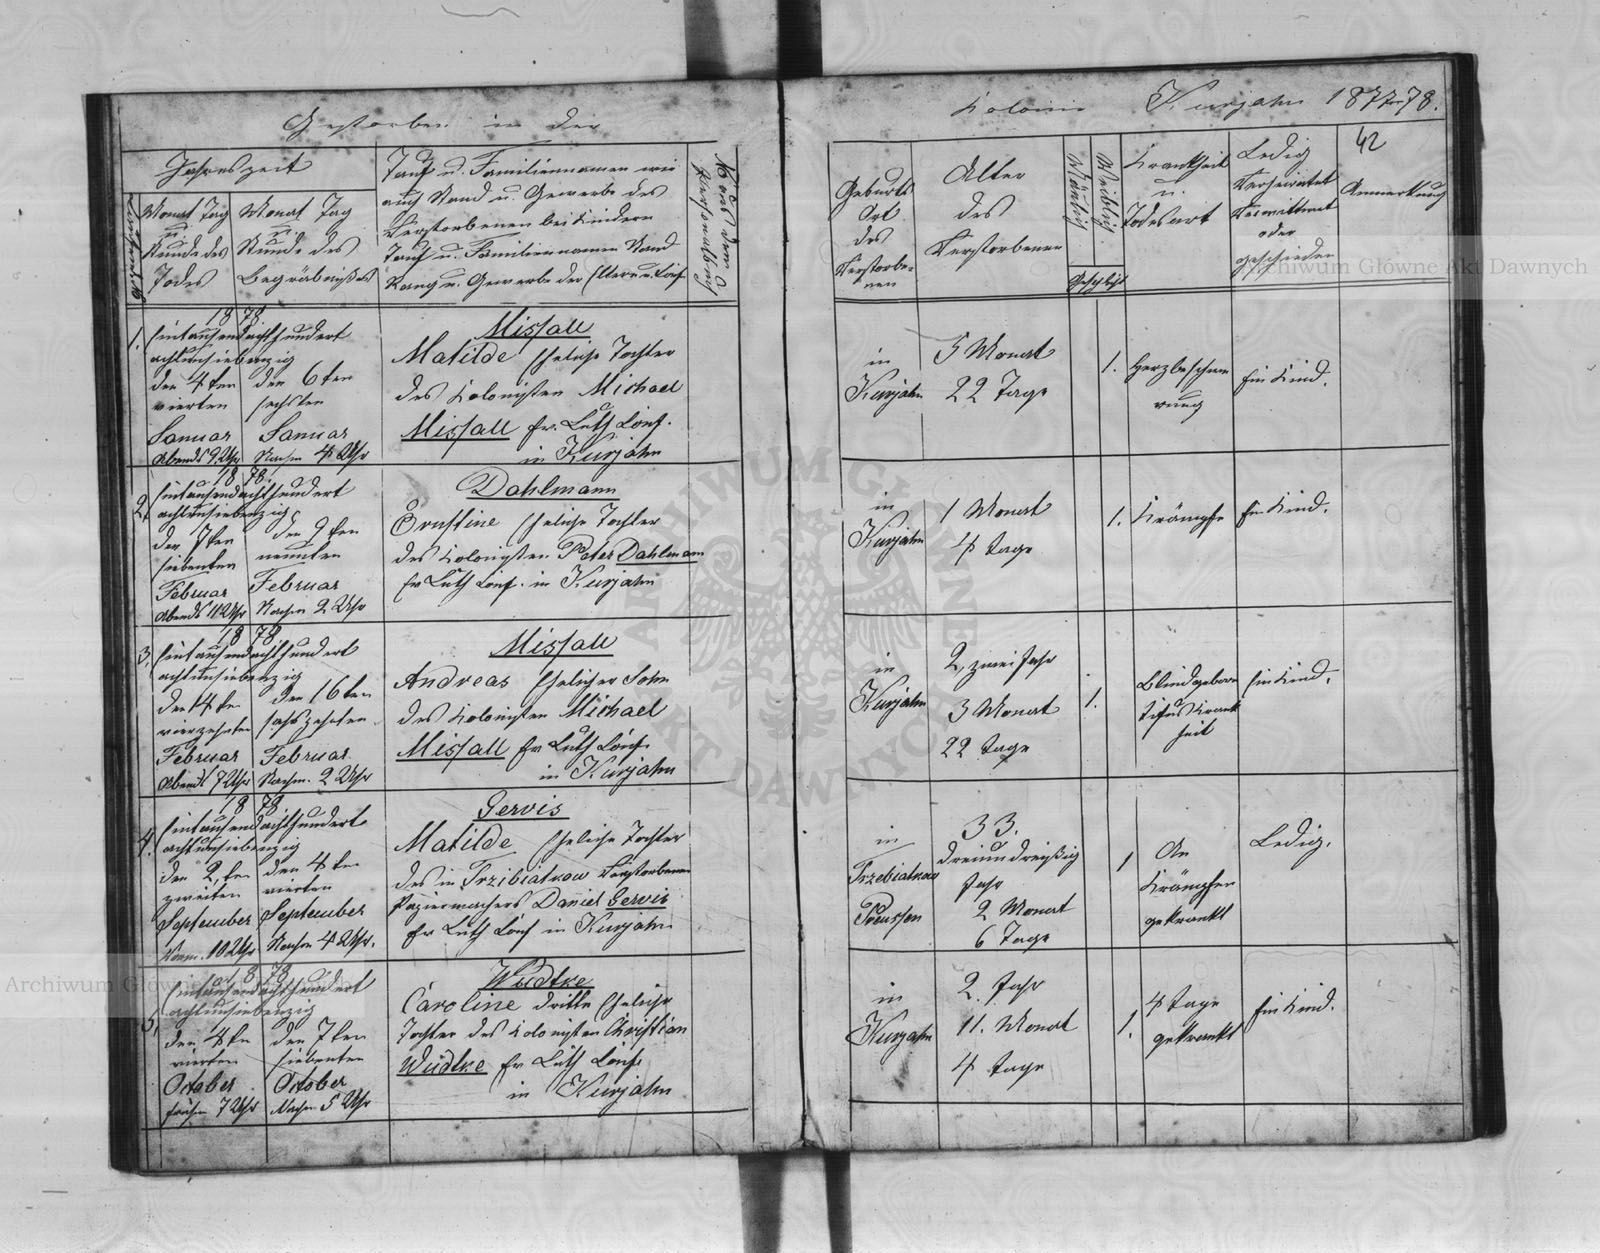 Gestorben in der
Kolonie Kurjahn 1877-78.
42
Jahreszeit
Monat Tag
u.
Stunde des
Todes
Monat Tag
u.
Stunde des
Begräbnißes
Tauf u. Familiennamen wie
auch Stand u. Gewerbe des
Verstorbenen bei Kindern
Tauf u. Familiennamen Stand
Rang u. Gewerbe der Eltern u. Conf.
Geburts
Ort
des
Verstorbe-
nen
Alter
des
Verstorbenen
Männlich
Weiblich
Geschlecht
Krankheit
u.
Todesart
Ledig
Verheirathet
Verwittwet
oder
geschieden
Anmerkung
1.
1878
Eintausendachthundert
achtundsiebenzig
den 4ten
vierten
Januar
Abends 9 Uhr
den 6ten
sechsten
Januar
Nachm 4 Uhr
Missall
Matilde Eheliche Tochter
des Kolonisten Michael
Missall Ev. Luth Conf.
in Kurjahn
in
Kurjahn
5 Monat
22 Tage
1.
Ein Kind.
2.
1878
Eintausendachthundert
achtundsiebenzig
den 7ten
siebenten
Februar
Abends 11 Uhr
den 9ten
neunten
Februar
Nachm 2 Uhr
Dahlmann
Ernstine Eheliche Tochter
des Kolonisten Peter Dahlmann
Ev Luth Conf. in Kurjahn
in
Kurjahn
1 Monat
4 Tage
1.
Krämpfe
Ein Kind.
3.
1878
Eintausendachthundert
achtundsiebenzig
den 14ten
vierzehnten
Februar
Abends 7 Uhr
den 16ten
sechszehnten
Februar
Nachm. 2 Uhr
Missall
Andreas Ehelicher Sohn
des Kolonisten Michael
Missall Ev Luth Conf.
in Kurjahn
in
Kurjahn
2, zwei Jahr
3 Monat
22 Tage
1.
Blindgeboren
Tifus Krank
heit
Ein Kind.
4.
1878
Eintausendachthundert
achtundsiebenzig
den 2ten
zweiten
September
Vorm. 10 Uhr
den 4ten
vierten
September
Nachm 4 Uhr.
Gervis
Matilde Eheliche Tochter
des in Trzibiatkow Verstorbenen
Papiermachers Daniel Gervis
Ev Luth Conf in Kurjahn
in
Trzebiatkow
Preussen
33.
dreiunddreißig
Jahr
2 Monat
6 Tage
1
An
Krämpfen
gekrankt
Ledig.
5.
1878
Eintausendachthundert
achtundsiebenzig
den 4ten
vierten
October
frühm 7 Uhr
den 7ten
siebenten
October
Nachm 5 Uhr
Wüdtke
Caroline dritte Eheliche
Tochter des Kolonisten Christian
Wüdtke Ev Luth Conf.
in Kurjahn
in
Kurjahn
2. Jahr
11. Monat
4 Tage
1.
4 Tage
gekrankt
Ein Kind.
Archiwum Główne Akt Dawnych
ARCHIWUM GŁÓWNE AKT DAWNYCH